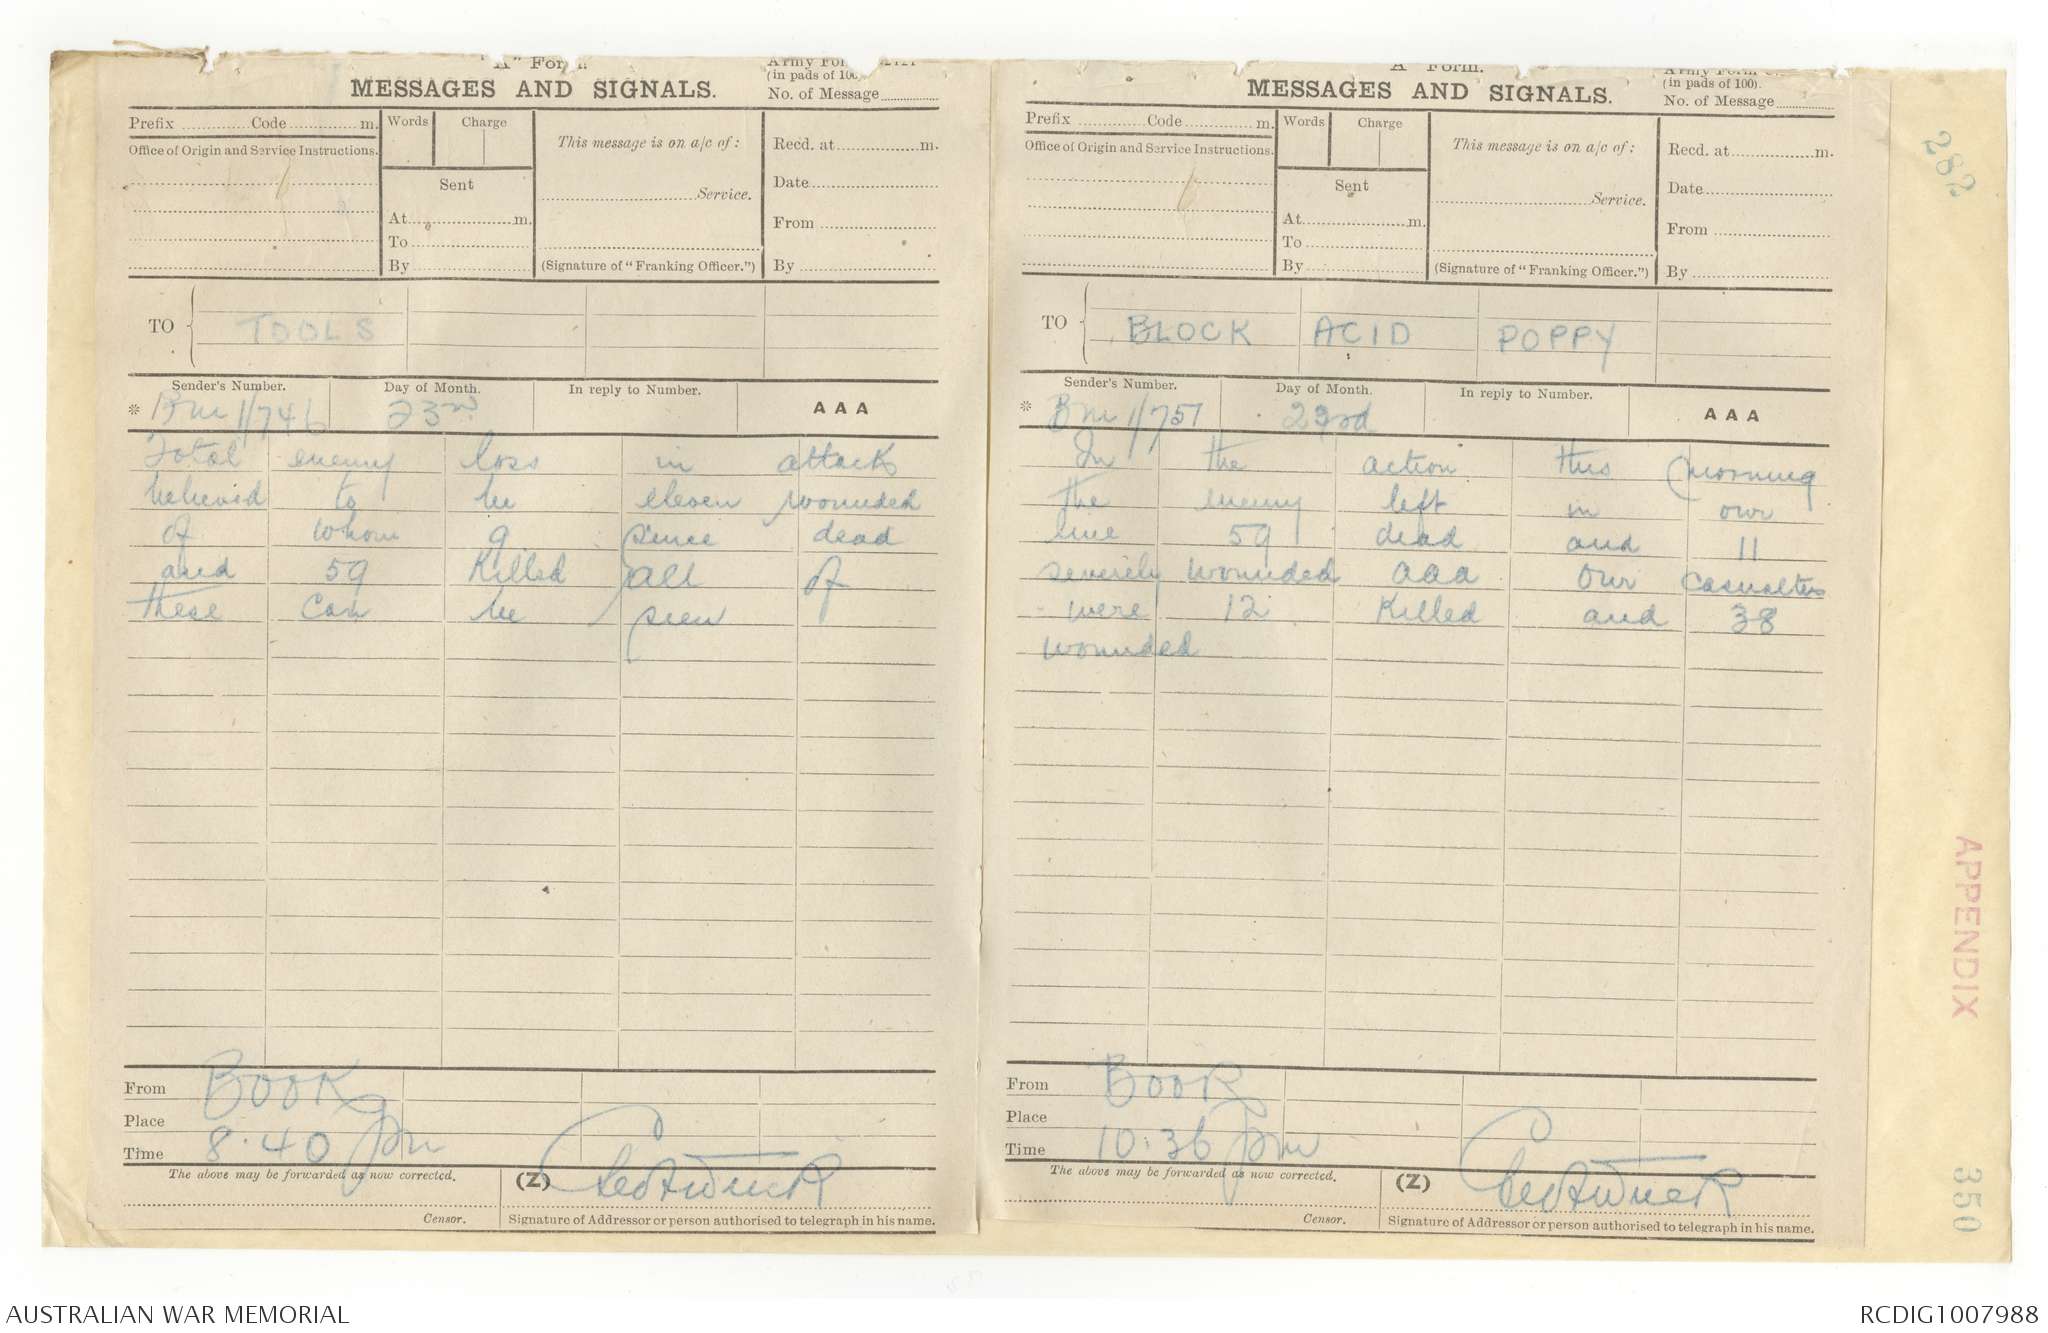 "A" Form.
MESSAGES AND SIGNALS.
Army Form
(in pads of 100
No. of Message
Prefix Code m.
Words Charge
This message is on a/c of :
Recd. at m.
Office of Origin and Service Instructions.
Sent
Date
Service.
At m.
From
To
By
(Signature of "Franking Officer.")
By
TO
TOOLS
Sender's Number.
Day of Month.
In reply to Number.
AAA
* Bm 1/746
23rd
Total enemy loss in attack
believed to be eleven wounded
of whom 9 since dead
and 59 killed all of
these can be seen
From BOOK
Place
Time 8.40 pm
The above may be forwarded as now corrected.
(Z)
Censor.
Signature of Addressor or person authorised to telegraph in his name.
A" Form.
MESSAGES AND SIGNALS.
Army Form
(in pads of 100).
No. of Message
Prefix Code m.
Words Charge
This message is on a/c of :
Recd. at m.
Office of Origin and Service Instructions.
Sent
Date
Service.
At m.
From
To
By
(Signature of "Franking Officer.")
By
TO
BLOCK ACID POPPY
Sender's Number.
Day of Month.
In reply to Number.
AAA
* Bm 1/751
23rd
In the action this morning
the enemy left in our
line 59 dead and 11
severely wounded aaa our casualties
were 12 killed and 38
wounded
From BOOK
Place
Time 10.36 pm
The above may be forwarded as now corrected.
(Z)
Censor.
Signature of Addressor or person authorised to telegraph in his name.
282
APPENDIX
350
AUSTRALIAN WAR MEMORIAL
RCDIG1007988